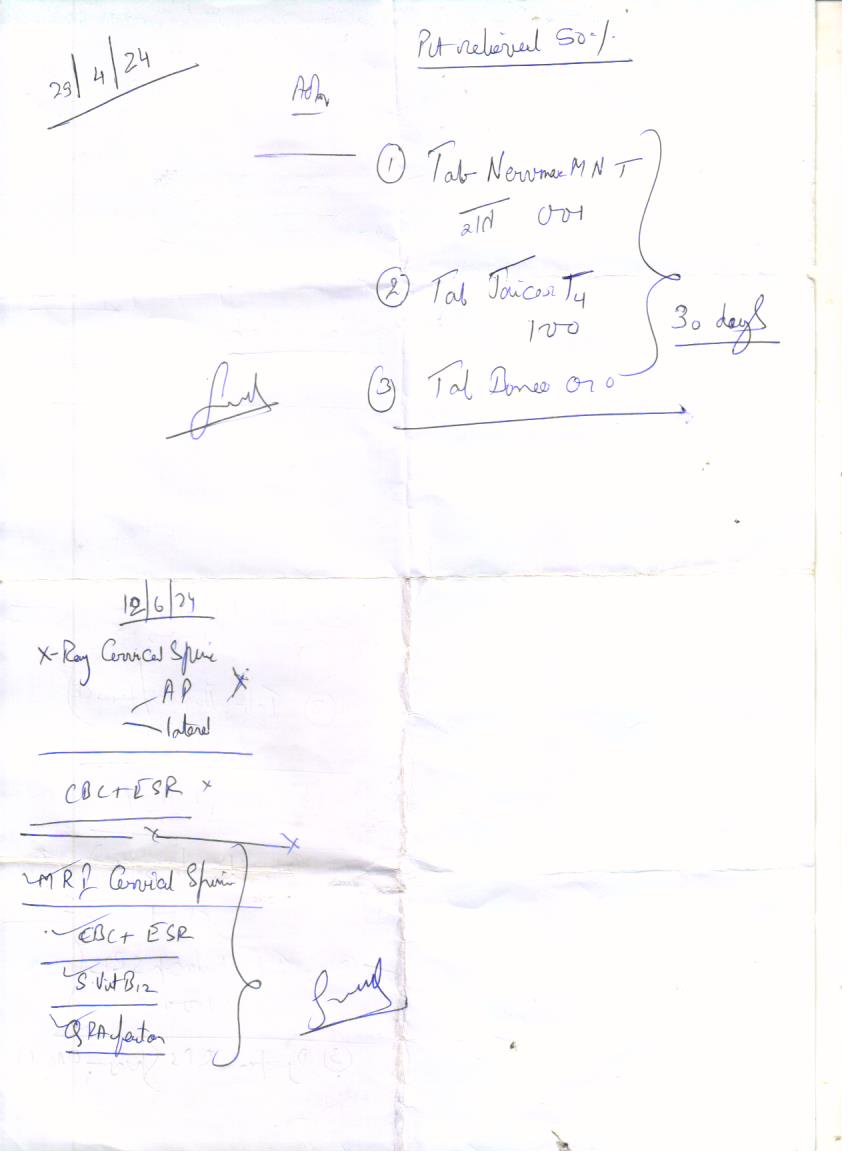 29/4/24
Pt relieved 50%
Adv
① Tab Nervmax M N T
001
② Tab T4
100
③ Tab 010
30 days
12/6/24
X-Ray Cervical Spine
AP X
lateral
CBC + ESR x
x x
MRI Cervical Spine
CBC + ESR
S. Vit B12
RA factor